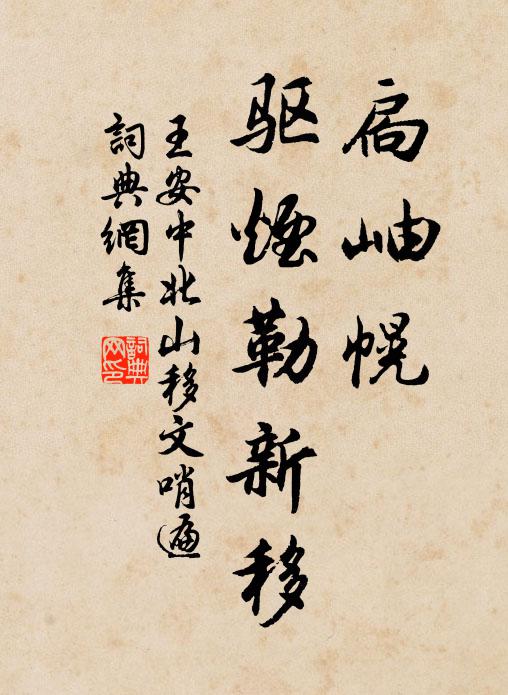 扃岫幌
驱煙勒新移
王安中北山移文哨遍
詞典網集
詞典網印